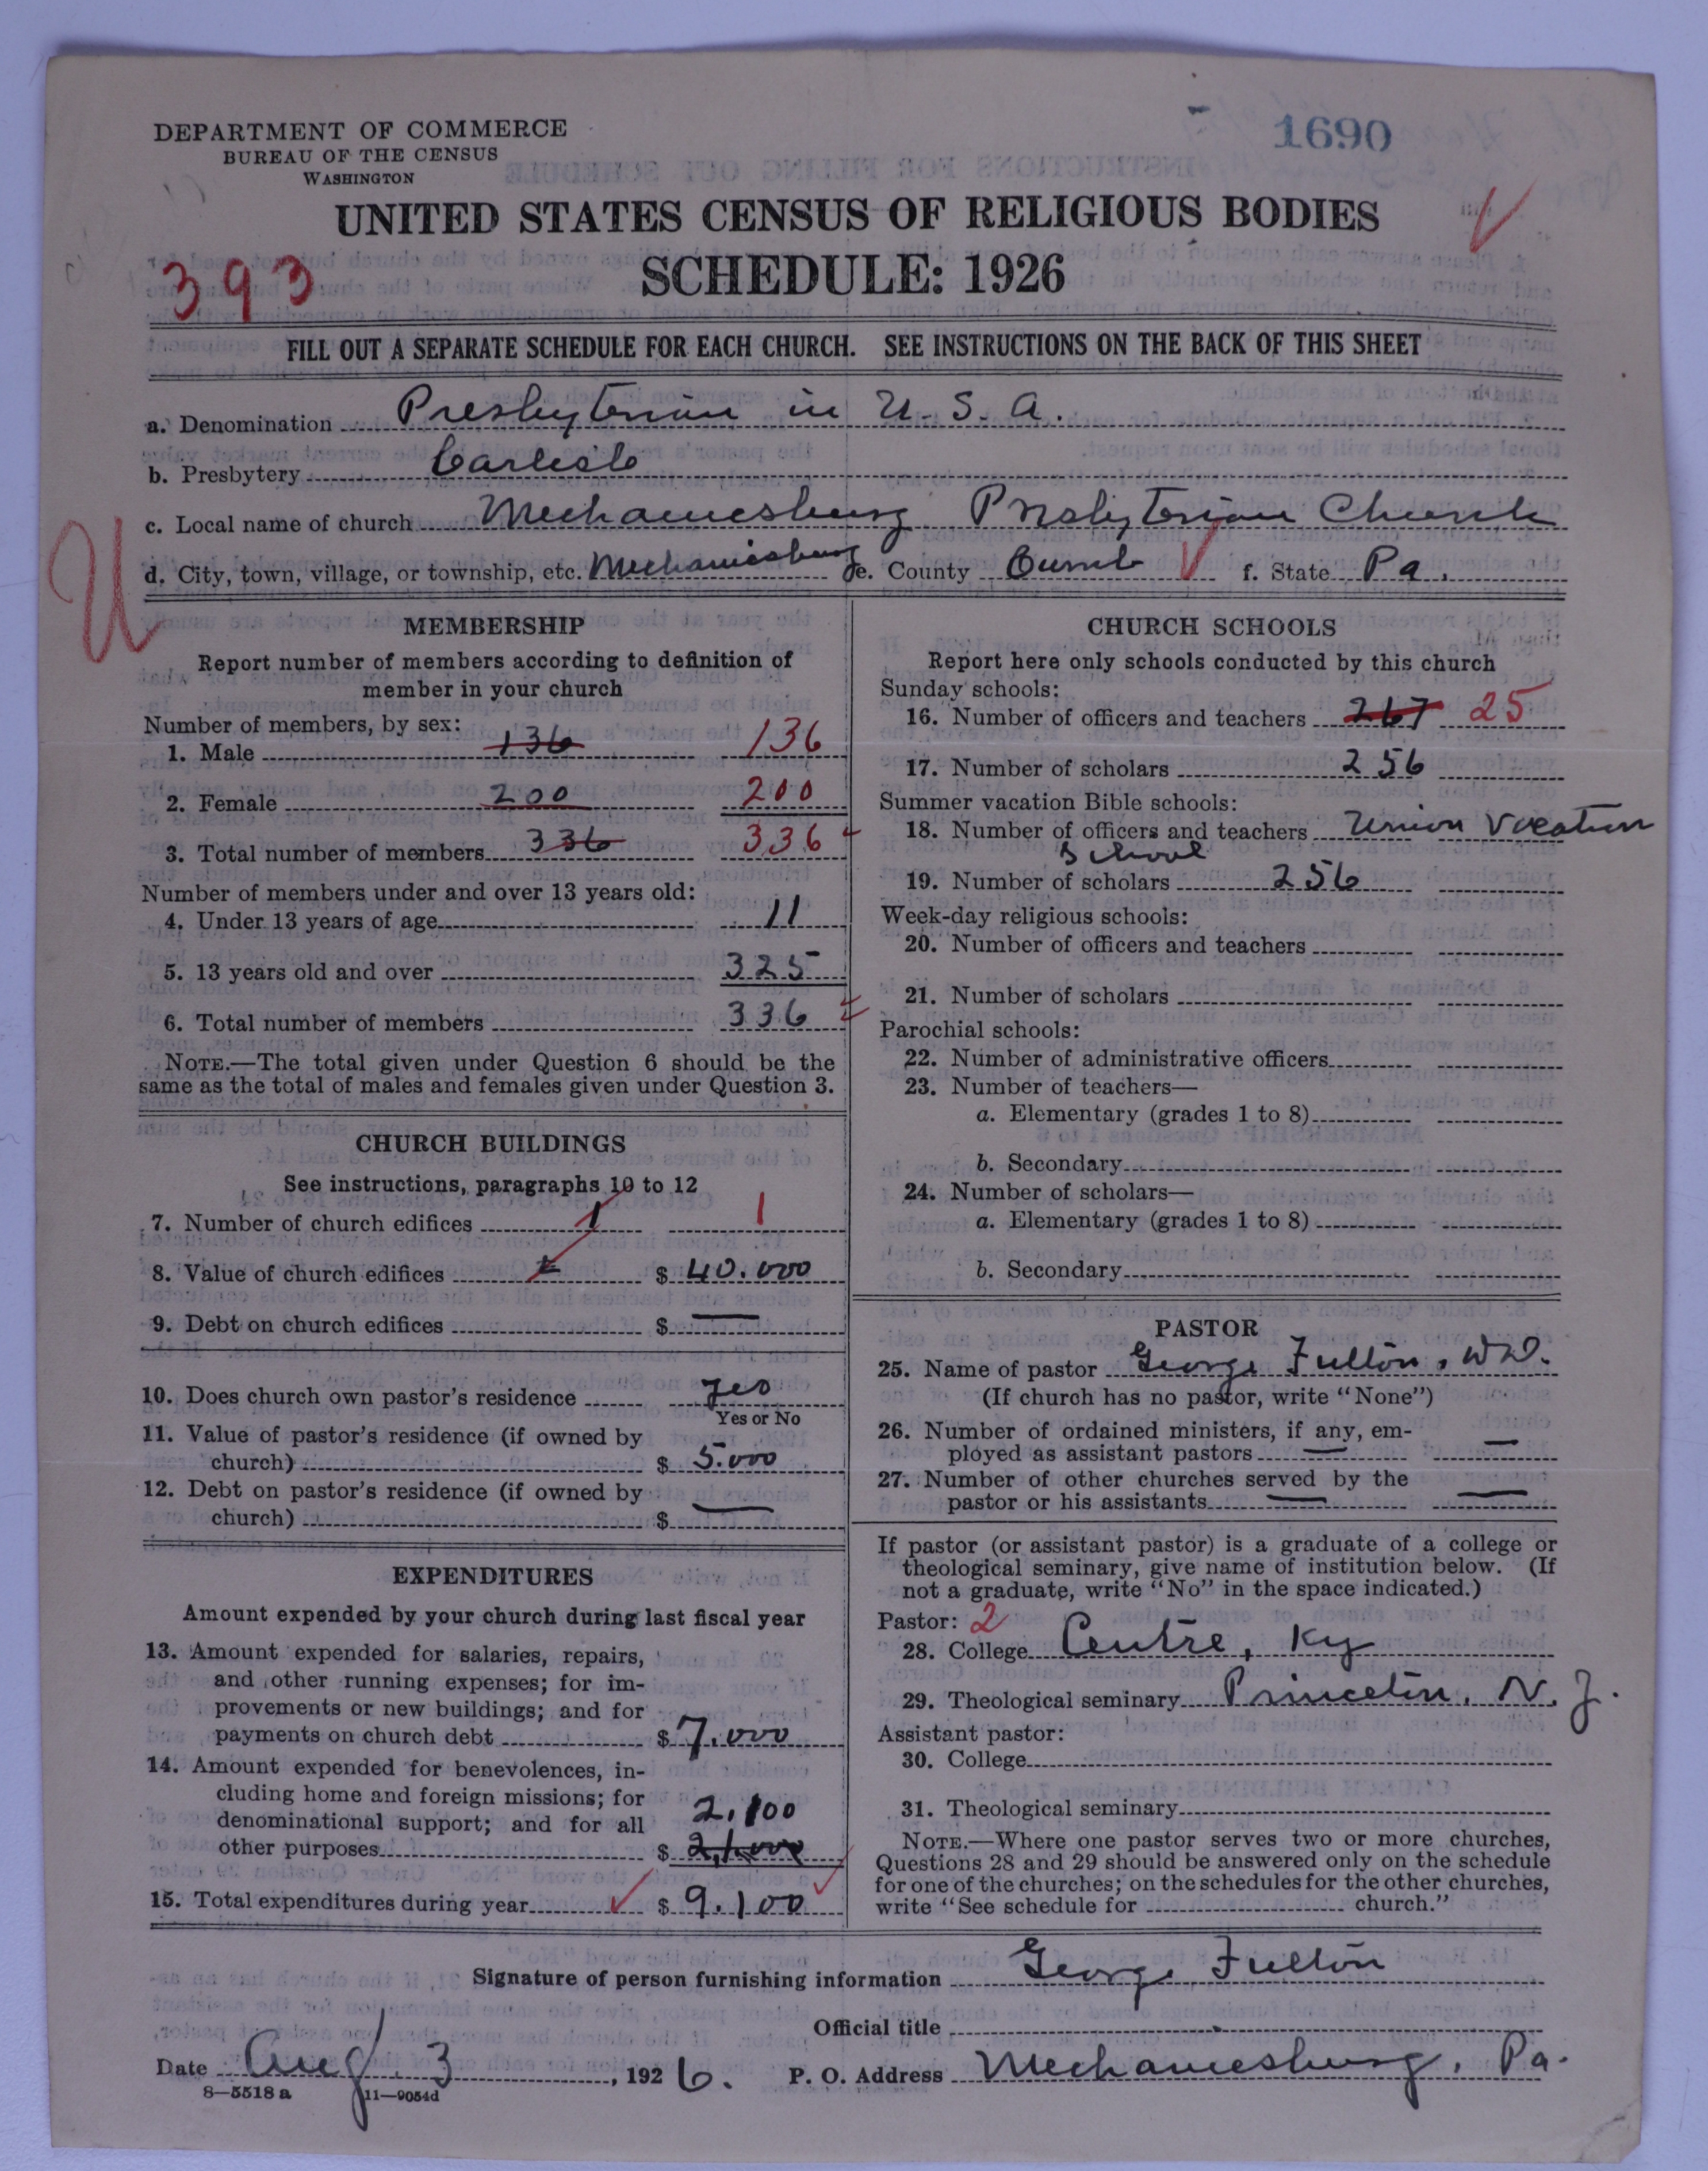 1690
DEPARTMENT OF COMMERCE
BUREAU OF THE CENSUS
WASHINGTON
UNITED STATES CENSUS OF RELIGIOUS BODIES
393
SCHEDULE: 1926
FILL OUT A SEPARATE SCHEDULE FOR EACH CHURCH. SEE INSTRUCTIONS ON THE BACK OF THIS SHEET
a. Denomination Presbyterian in U. S. A.
b. Presbytery Carlisle
c. Local name of church Mechanicsburg Presbyterian Church
d. City, town, village, or township, etc. Mechanicsburg e. County Cumb f. State Pa.
U
MEMBERSHIP
Report number of members according to definition of
member in your church
Number of members, by sex:
1. Male 136 136
2. Female 200 200
3. Total number of members 336 336
Number of members under and over 13 years old:
4. Under 13 years of age 11
5. 13 years old and over 325
6. Total number of members 336
NOTE.—The total given under Question 6 should be the
same as the total of males and females given under Question 3.
CHURCH BUILDINGS
See instructions, paragraphs 10 to 12
7. Number of church edifices 1 1
8. Value of church edifices $ 40.000
9. Debt on church edifices $ —
10. Does church own pastor's residence Yes
Yes or No
11. Value of pastor's residence (if owned by
church) $ 5.000
12. Debt on pastor's residence (if owned by
church) $ —
EXPENDITURES
Amount expended by your church during last fiscal year
13. Amount expended for salaries, repairs,
and other running expenses; for im-
provements or new buildings; and for
payments on church debt $ 7.000
14. Amount expended for benevolences, in-
cluding home and foreign missions; for
denominational support; and for all 2.100
other purposes $ 2,1.000
15. Total expenditures during year $ 9.100
CHURCH SCHOOLS
Report here only schools conducted by this church
Sunday schools:
16. Number of officers and teachers 267 25
17. Number of scholars 256
Summer vacation Bible schools:
18. Number of officers and teachers Union Vacation
School
19. Number of scholars 256
Week-day religious schools:
20. Number of officers and teachers
21. Number of scholars
Parochial schools:
22. Number of administrative officers
23. Number of teachers—
a. Elementary (grades 1 to 8)
b. Secondary
24. Number of scholars—
a. Elementary (grades 1 to 8)
b. Secondary
PASTOR
25. Name of pastor George Fulton,
(If church has no pastor, write "None")
26. Number of ordained ministers, if any, em-
ployed as assistant pastors — —
27. Number of other churches served by the
pastor or his assistants — —
If pastor (or assistant pastor) is a graduate of a college or
theological seminary, give name of institution below. (If
not a graduate, write "No" in the space indicated.)
Pastor: 2
28. College Centre, Ky
29. Theological seminary Princeton, N. J.
Assistant pastor:
30. College
31. Theological seminary
NOTE.—Where one pastor serves two or more churches,
Questions 28 and 29 should be answered only on the schedule
for one of the churches; on the schedules for the other churches,
write "See schedule for church."
Signature of person furnishing information George Fulton
Official title
Date Aug 3, 1926. P. O. Address Mechanicsburg, Pa.
8—5518 a 11—9054d